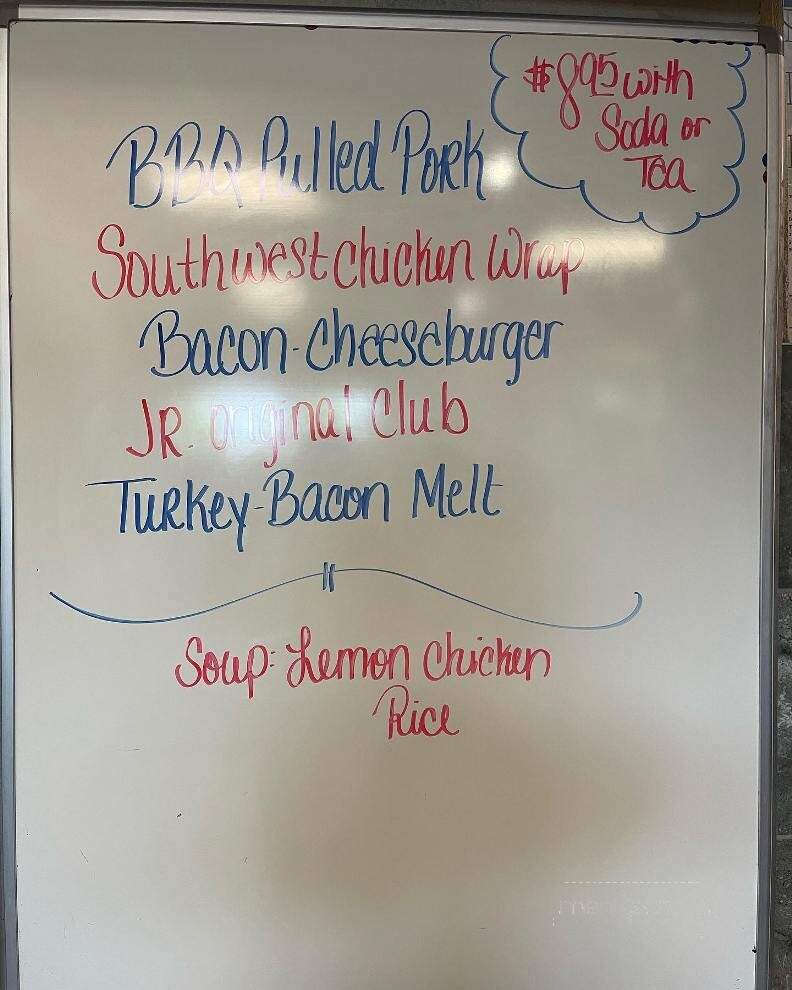 $8.95 with
Soda or
Tea
BBQ Pulled Pork
Southwest Chicken Wrap
Bacon-Cheeseburger
JR. original Club
Turkey-Bacon Melt
Soup: Lemon Chicken
Rice